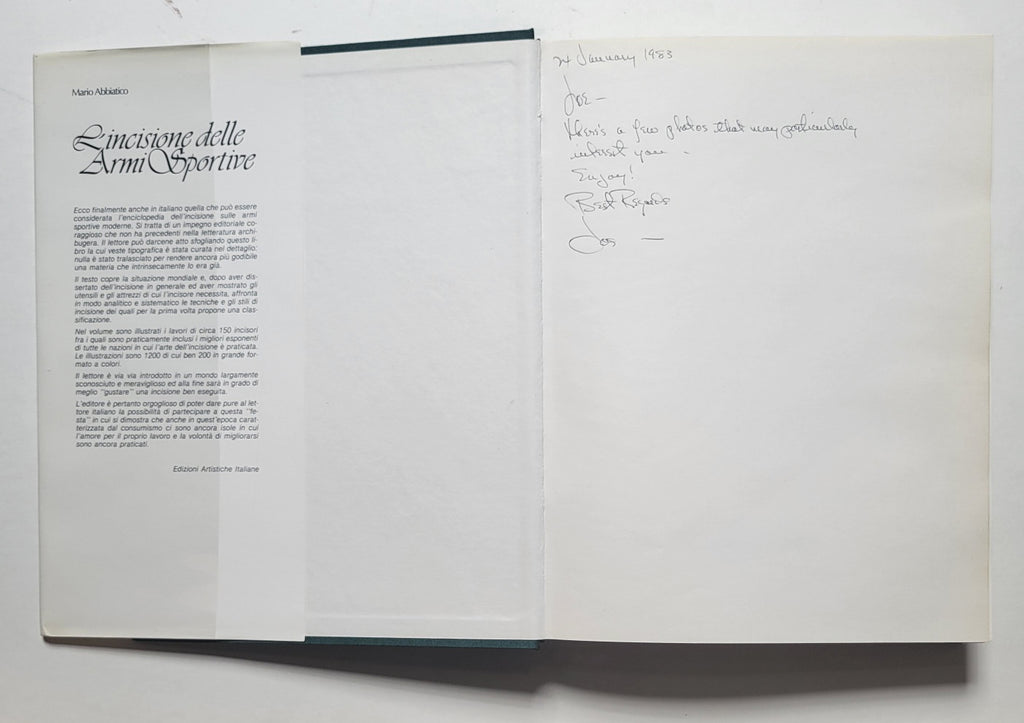 Mario Abbiatico
L'incisione delle
Armi Sportive
Ecco finalmente anche in italiano quella che può essere
considerata l'enciclopedia dell'incisione sulle armi
sportive moderne. Si tratta di un impegno editoriale co-
raggioso che non ha precedenti nella letteratura archi-
bugera. Il lettore può darcene atto sfogliando questo li-
bro la cui veste tipografica è stata curata nel dettaglio:
nulla è stato tralasciato per rendere ancora più godibile
una materia che intrinsecamente lo era già.
Il testo copre la situazione mondiale e, dopo aver dis-
sertato dell'incisione in generale ed aver mostrato gli
utensili e gli attrezzi di cui l'incisore necessita, affronta
in modo analitico e sistematico le tecniche e gli stili di
incisione dei quali per la prima volta propone una clas-
sificazione.
Nel volume sono illustrati i lavori di circa 150 incisori
fra i quali sono praticamente inclusi i migliori esponenti
di tutte le nazioni in cui l'arte dell'incisione è praticata.
Le illustrazioni sono 1200 di cui ben 200 in grande for-
mato a colori.
Il lettore è via via introdotto in un mondo largamente
sconosciuto e meraviglioso ed alla fine sarà in grado di
meglio "gustare" una incisione ben eseguita.
L'editore è pertanto orgoglioso di poter dare pure al let-
tore italiano la possibilità di partecipare a questa "fe-
sta" in cui si dimostra che anche in quest'epoca carat-
terizzata dal consumismo ci sono ancora isole in cui
l'amore per il proprio lavoro e la volontà di migliorarsi
sono ancora praticati.
Edizioni Artistiche Italiane
24 January 1983
Joe -
Here's a few photos that may particularly
interest you -
Enjoy!
Best Regards
Joe -